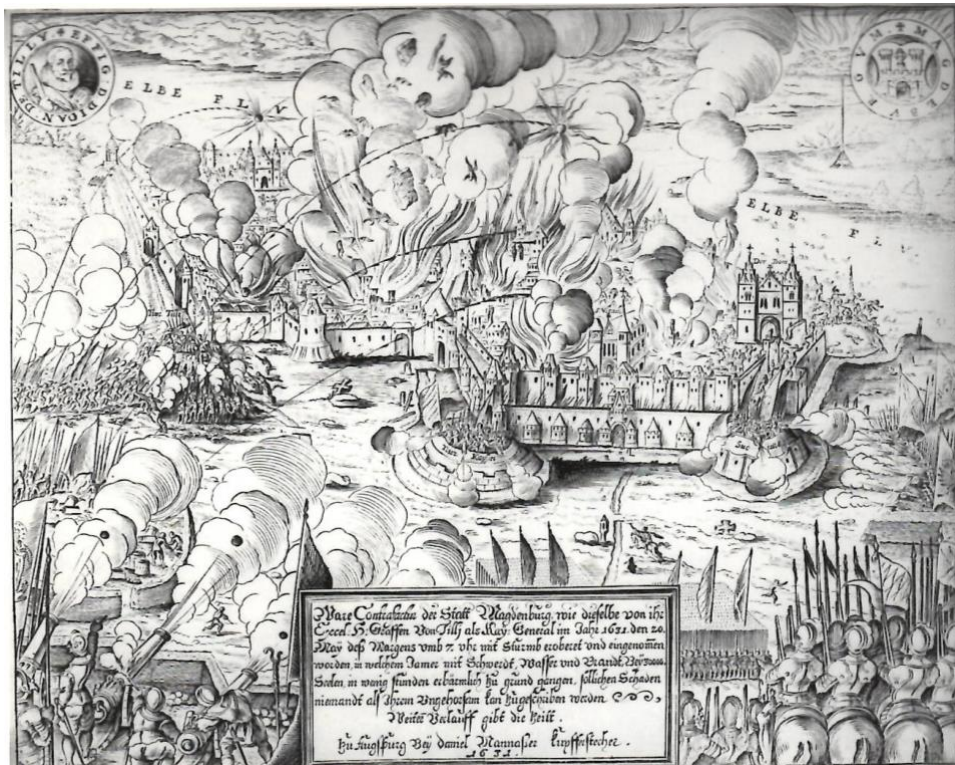 EFFIG: D: IOAN: DE TILLY
MAGDEBVRGVM
ELBE FLV
ELBE Fl.
Ware Contrafactur der Statt Magdenburg, wie dieselbe von ihr
Excel. H. Graffen Von Tilly als Kay: General im Jahr 1631. den 20.
May deß Morgens umb 7. uhr mit Sturmb eroberet und eingenomen
worden, in welchem Jamer mit Schwerdt, Wasser und Brandt, Bey
Seelen, in wenig stunden erbärmlich zu grund gangen, sollichen Schaden
niemandt als Ihrem Ungehorsam kan zugeschriben werden.
Weiter Verlauff gibt die Zeitt.
Zu Augspurg Bey daniel Mannasser Kupfferstecher.
1631.